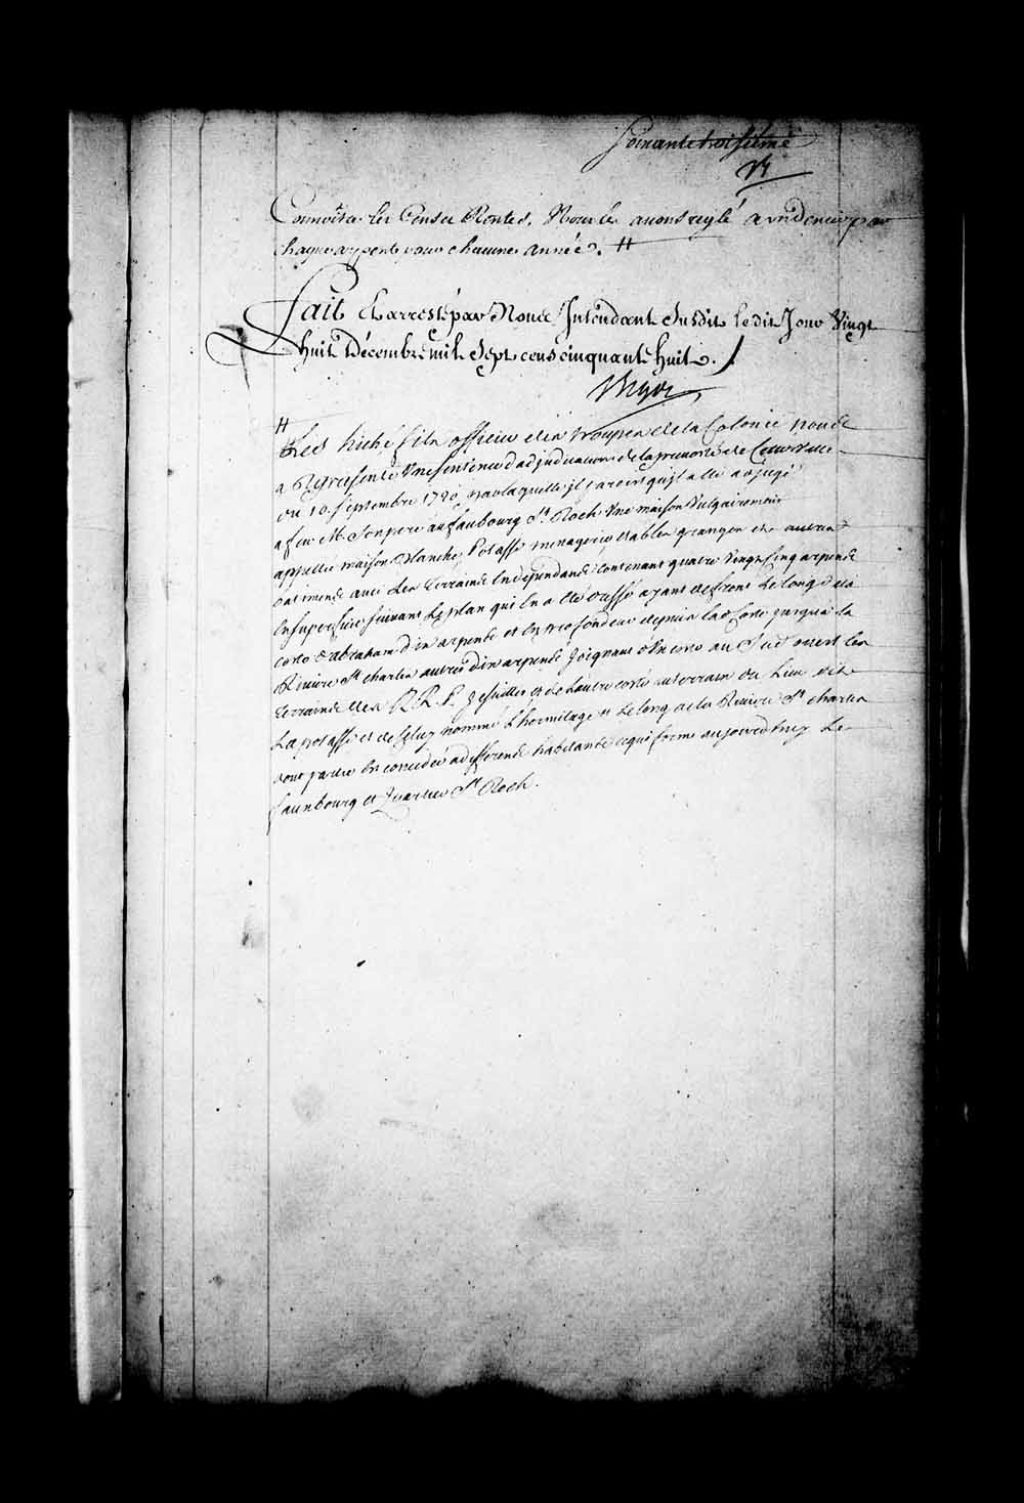 Soixante troisiéme
Connoître les Cens et Rentes, Nous les avons reglé a un denier par
chaque arpent pour chacune année. #
Fait Et arresté par Nous Intendant Susdit le dit Jour Vingt
huit Décembre mil Sept cens cinquante huit.
Bigot
#
Led. hiché fils officier des troupes de la Colonie nous
a Representé Une sentence d'adjudication de la prevosté de Cette Ville
du 10 Septembre 1720, par laquelle il paroist qu'il a été adjugé
a feu Mr. Son pere au faubourg St. Roch Une maison Vulgairement
appellée maison blanche, Potasse menagerie Etables granges et autres
batimens avec des terrains Independans contenant quatre Vingt Cinq arpens
En Superficie suivant Le plan qui En a été dressé ayant de front Le long des
costes d'abraham dix arpens et En profondeur depuis lad. Coste jusqu'a la
Riviere St. charles autres dix arpens Joignant d'Un costé au Sud ouest les
terrains des R.R. P. Jesuittes et de L'autre costé au terrain du Lieu dit
La potasse et de Celuy nommé L'hermitage et Le long de la Riviere St. charles
dont partie En concedée a differens habitans ce qui forme aujourd'huy Le
faunbourg et quartier St. Roch.